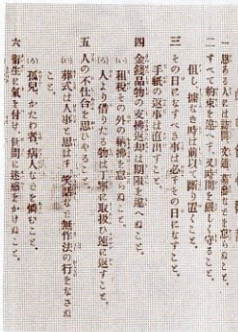 一 恩ある人には訪問、文通、慶弔などを怠らぬこと。
二 すべて約束を違へず、又時間を嚴しく守ること。
但し、據なき時は前以て斷り置くこと。
三 その日になすべき事は必ずその日になすこと。
手紙の返事は直出すこと。
四 金錢品物の支拂返却は期限を違へぬこと。
(い) 租稅その外の納拂を怠らぬこと。
(ろ) 人より借りたる物は丁寧に取扱ひ速に返すこと。
五 人の不仕合を思ひやること。
(い) 葬式は人事と思はず、笑話など無作法の行をなさぬ
こと。
(ろ) 孤兒、かたわ者、病人などを憐むこと。
六 衞生に氣を付け、世間に迷惑をかけぬこと。